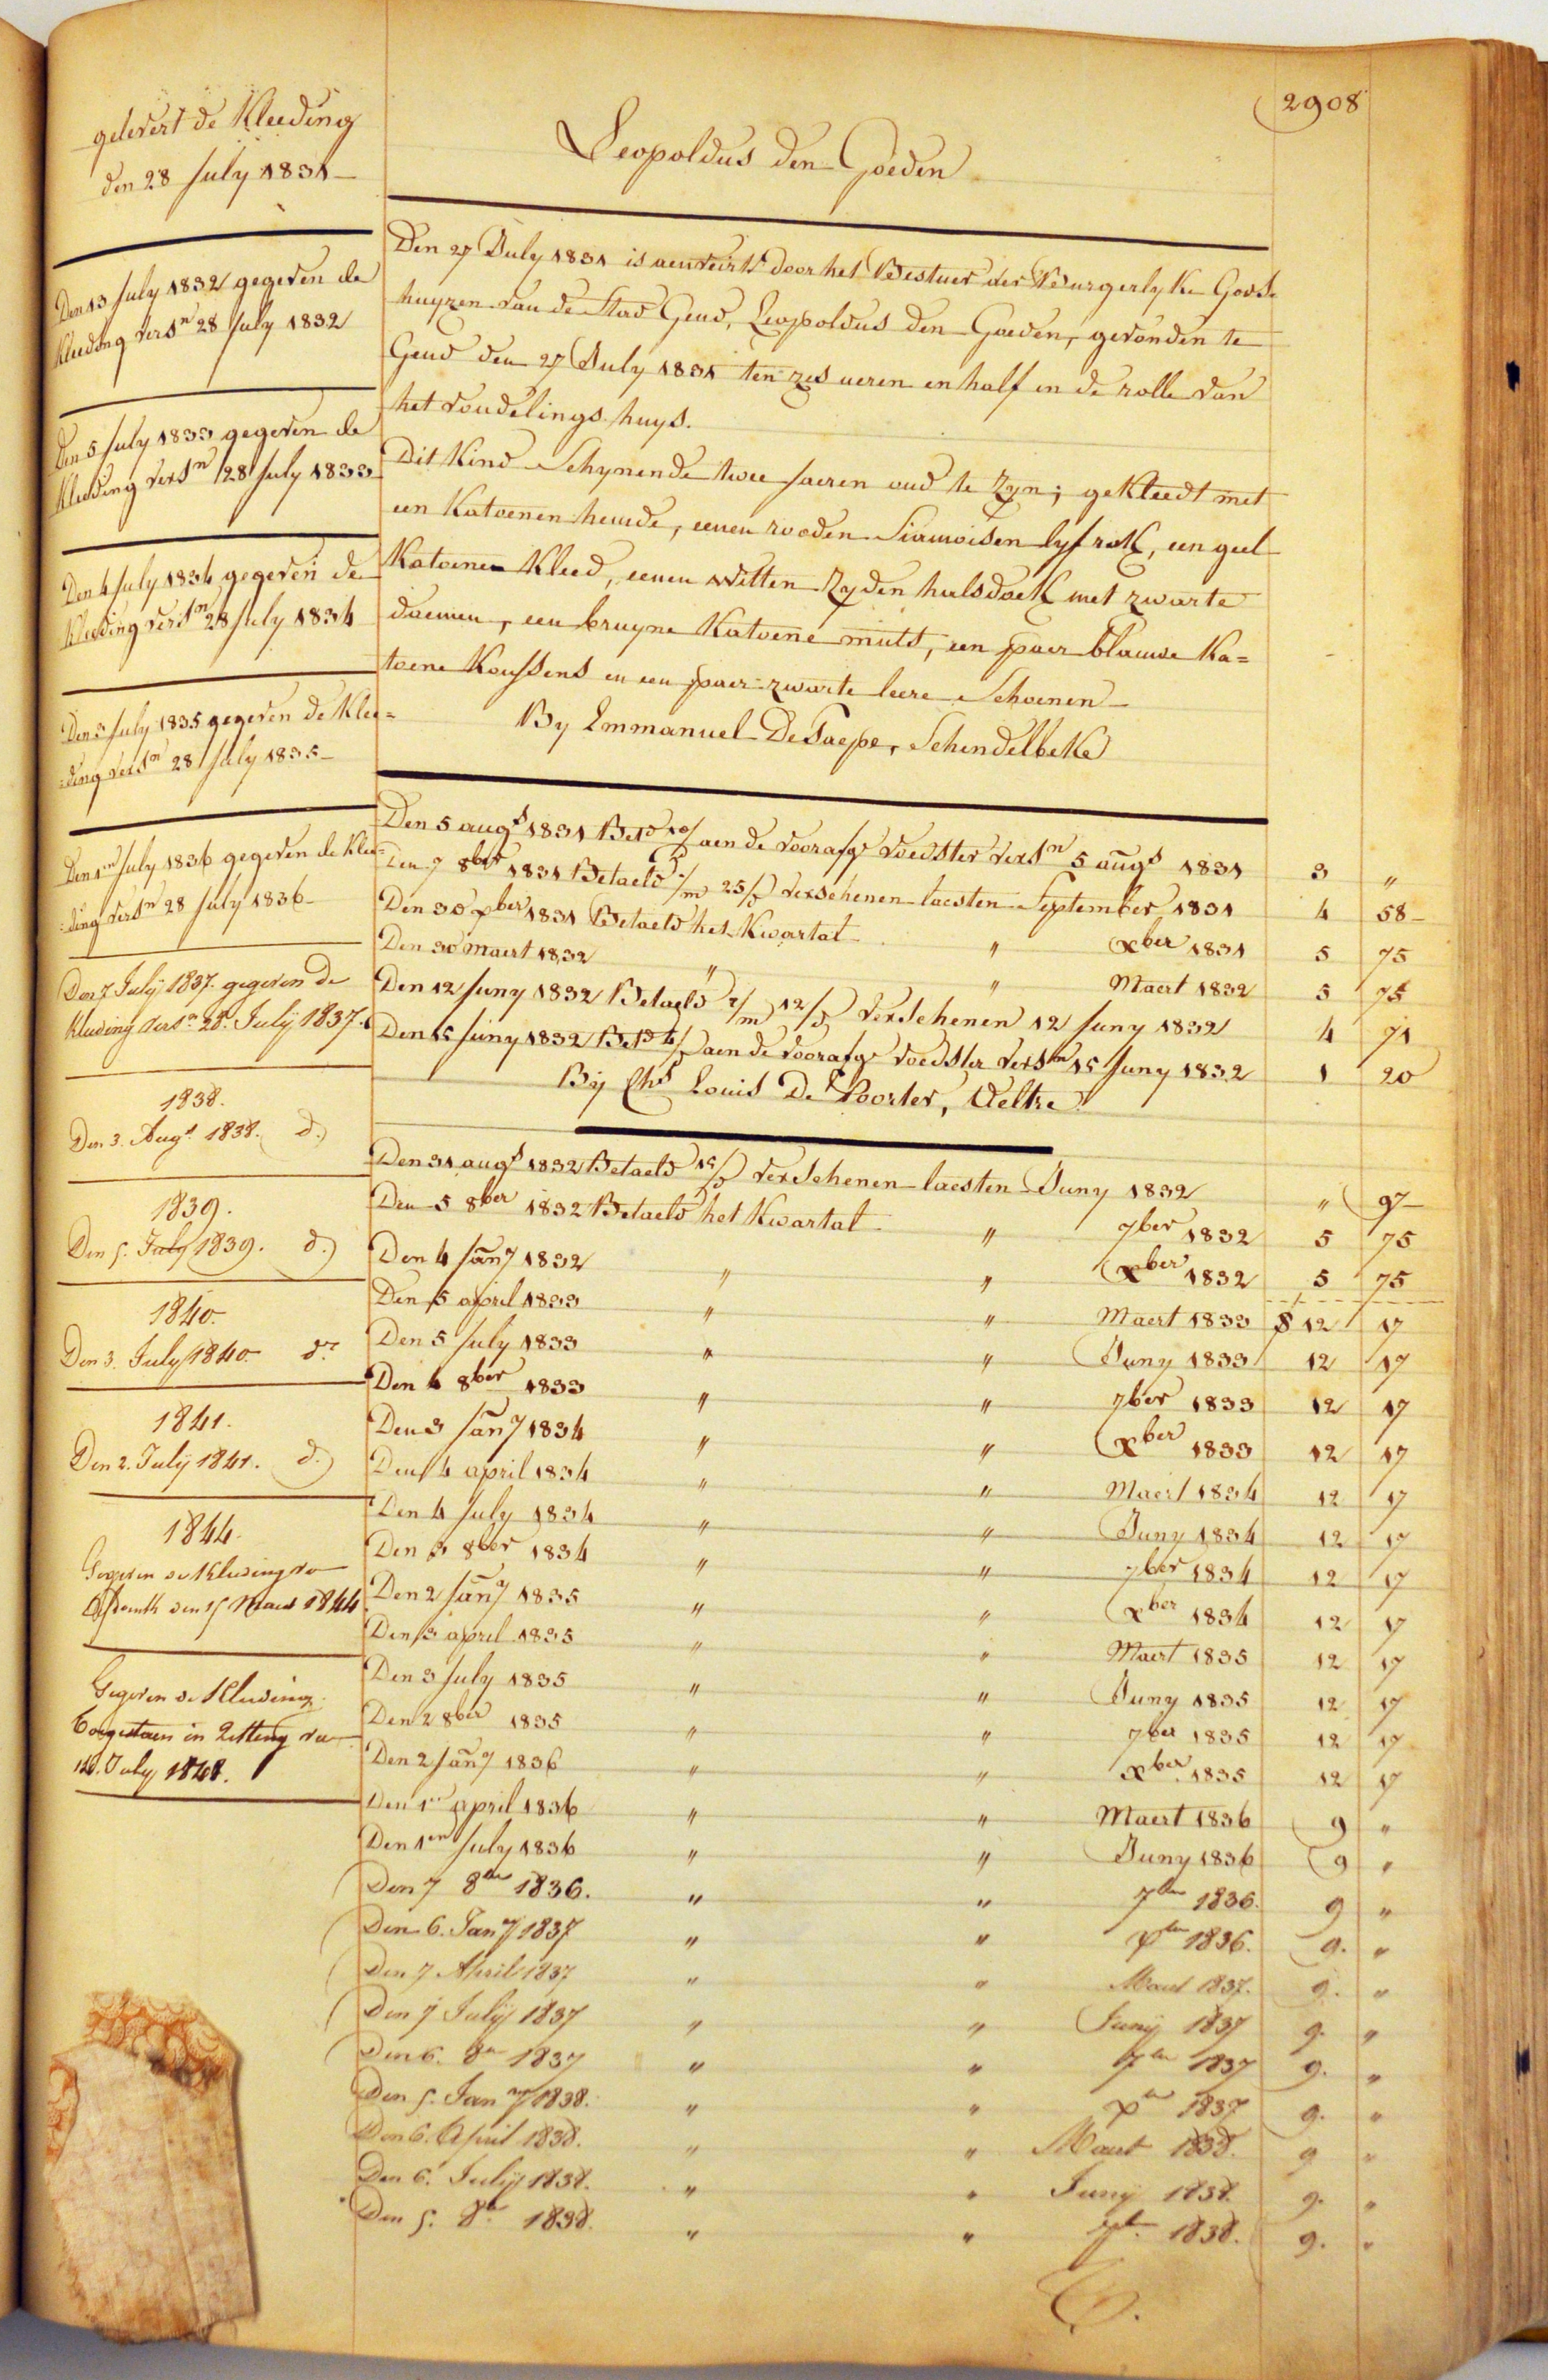 2908
gelevert de Kleeding
den 28 July 1831
Den 13 July 1832 gegeven de
Kleeding versn 28 July 1832
Den 5 July 1833 gegeven de
Kleeding versn 28 July 1833
Den 4 July 1834 gegeven de
Kleeding versn 28 July 1834
Den 3 July 1835 gegeven de Klee=
=ding versn 28 July 1835
Den 1en July 1836 gegeven de Klee=
=ding versn 28 July 1836
Den 7 July 1837. gegeven de
Kleeding versn 28. July 1837.
1838.
Den 3. Augt 1838. d.)
1839.
Den 5. July 1839. d.)
1840.
Den 3. July 1840. do
1841.
Den 2. July 1841. d.)
1844.
Gegeven de Kleeding
den 15 Maert 1844
Gegeven de Kleeding
Toegestaen in Zitting van
July 1848.
Leopoldus den Goeden
Den 27 July 1831 is aenveirt door het Bestuer der Burgerlyke Gods-
huyzen van de Stad Gend, Leopoldus den Goeden, gevonden te
Gend den 27 July 1831 ten zes ueren en half in de rolle van
het vondelings huys.
Dit Kind Schynende twee Jaeren oud te Zyn; gekleedt met
een Katoenen hemde, eenen rooden Siamoisen lyfrok, een geel
Katoenen Kleed, eenen witten Zyden halsdoek met zwarte
daemen, een bruyne Katoene muts, een paer blauwe Ka=
toene Koussens en een paer zwarte leere Schoenen
By Emmanuel De Paepe, Schendelbeke
Den 5 augt 1831 Betd 10/ aen de voorafge voedster versn 5 augt 1831 3 "
Den 7 8ber 1831 Betaeld 1/m 25/d verschenen laesten September 1831 4 58
Den 30 xber 1831 Betaeld het Kwartal " xber 1831 5 75
Den 30 maert 1832 " " Maert 1832 5 75
Den 12 Juny 1832 Betaeld 2/m 12/d verschenen 12 Juny 1832 4 71
Den 15 Juny 1832 Betd 4/ aen de voorafge voedster versn 15 Juny 1832 1 20
By Chs Louis De Poorter, Veltre
Den 31 augt 1832 Betaeld 15/d verschenen laesten Juny 1832 " 97
Den 5 8ber 1832 Betaeld het Kwartal " 7ber 1832 5 75
Den 4 Jany 1832 " " xber 1832 5 75
Den 5 april 1833 " " Maert 1833 12 17
Den 5 July 1833 " " Juny 1833 12 17
Den 4 8ber 1833 " " 7ber 1833 12 17
Den 3 Jany 1834 " " xber 1833 12 17
Den 4 april 1834 " " Maert 1834 12 17
Den 4 July 1834 " " Juny 1834 12 17
Den 3 8ber 1834 " " 7ber 1834 12 17
Den 2 Jany 1835 " " xber 1834 12 17
Den 3 april 1835 " " Maert 1835 12 17
Den 3 July 1835 " " Juny 1835 12 17
Den 2 8ber 1835 " " 7ber 1835 12 17
Den 2 Jany 1836 " " xber 1835 12 17
Den 1en april 1836 " " Maert 1836 9 "
Den 1en July 1836 " " Juny 1836 9 "
Den 7 8ber 1836. " " 7ber 1836. 9 "
Den 6. Jany 1837 " " xber 1836. 9. "
Den 7 April 1837 " " Maert 1837. 9. "
Den 7 July 1837 " " Juny 1837 9. "
Den 6. 8er 1837 " " 7ber 1837 9. "
Den 5. Jany 1838. " " xer 1837 9. "
Den 6. April 1838. " " Maert 1838. 9 "
Den 6. July 1838. " " Juny 1838. 9. "
Den 5. 8er 1838. " " 7er 1838. 9. "